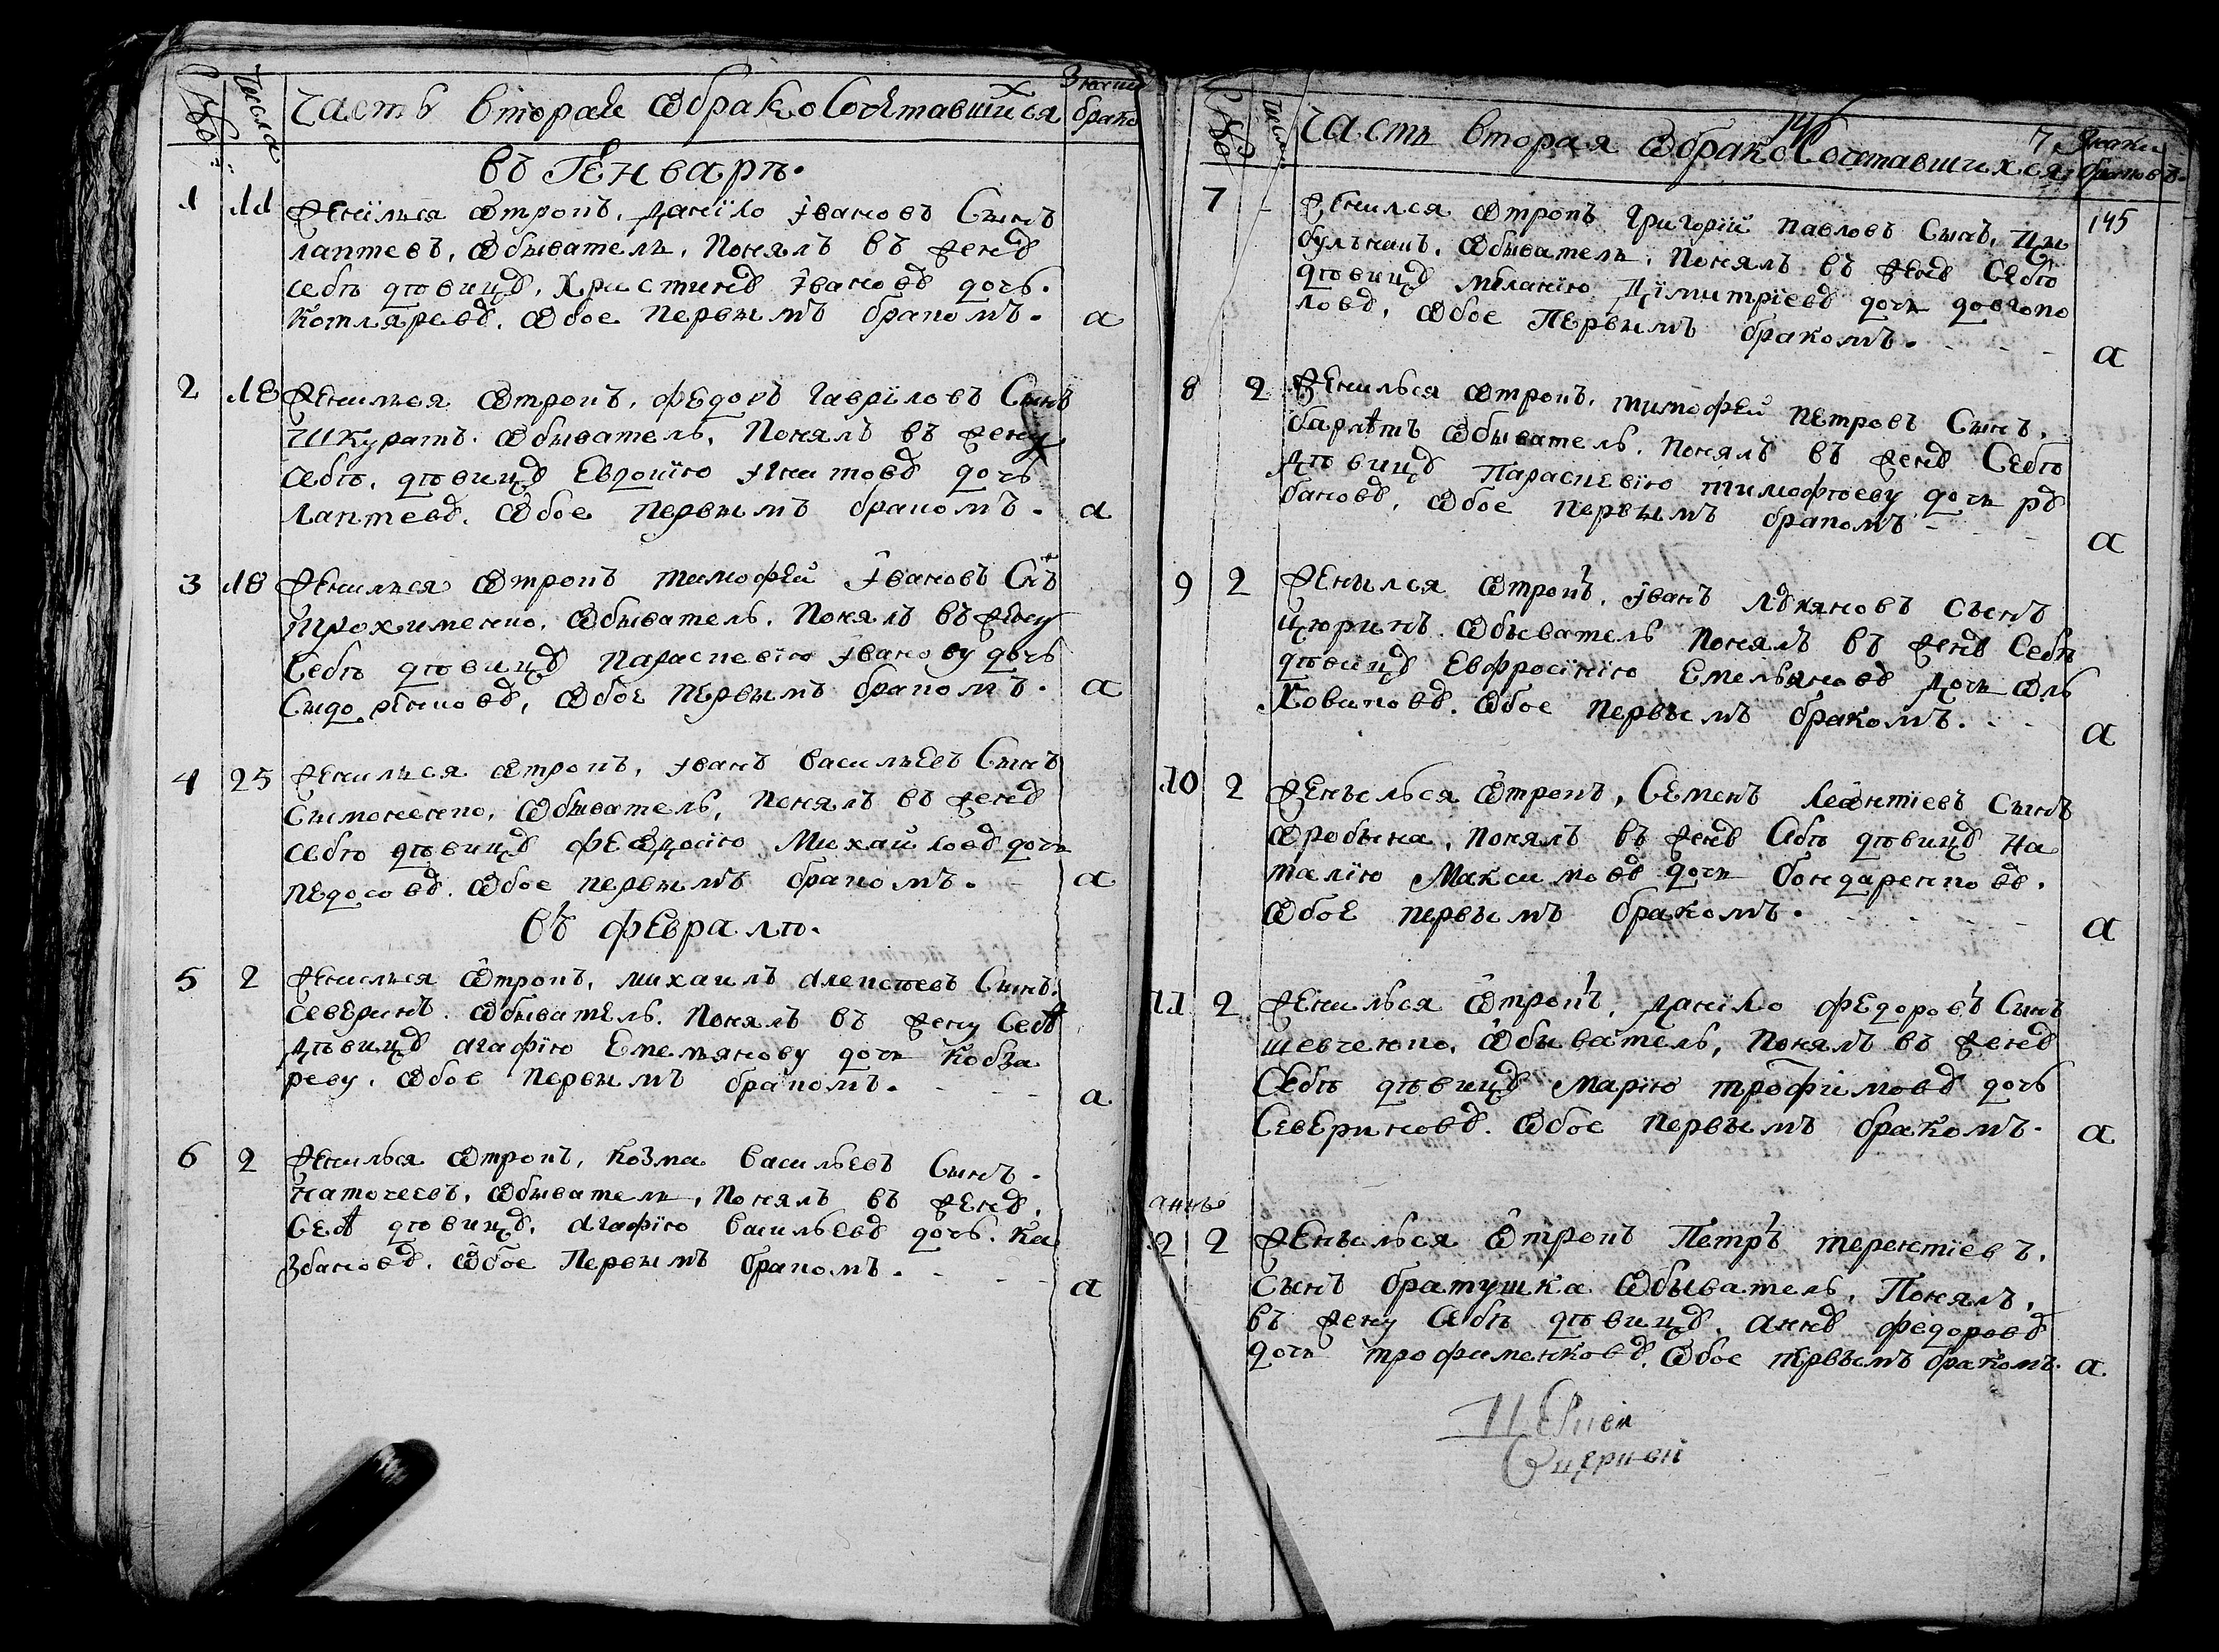 Число
Часть вторая ѡбрако Сочетавшихся
брако
въ Генварѣ.
1 11 Женился ѿтрокъ, данїло Ивановъ Сынъ
лаптевъ, ѡбыватель, Понялъ въ женꙋ
себѣ дѣвицꙋ, Христинꙋ Ивановꙋ дочь.
Котляревꙋ. ѡбое первымъ бракомъ. а
2 18 Женился ѿтрокъ, федоръ гаврїловъ Сынъ
Шкуратъ. ѡбыватель, Понялъ въ жену
себѣ, дѣвицꙋ Евдокїю Никитовꙋ дочь
Лаптевꙋ. ѡбое первымъ бракомъ. а
3 18 Женился ѿтрокъ тимофей Ивановъ Снъ
Трохименко, ѡбыватель, Понялъ въ жену
Себѣ дѣвицꙋ Параскевїю Иванову дочь
ѡбое первымъ бракомъ. а
4 25 Женился ѿтрокъ, Иванъ васильевъ Сынъ
Сымоненко, ѡбыватель, Понялъ въ женꙋ
себѣ дѣвицꙋ феѡдосїю Михайловꙋ дочь
Педосовꙋ. ѡбое первымъ бракомъ. а
въ февралѣ.
5 2 Женился ѿтрокъ, михаилъ Алексѣевъ Сынъ.
северинъ. ѡбыватель. Понялъ въ жену себѣ
дѣвицꙋ агафїю Емельянову дочь Кобза
реву. ѡбое первымъ бракомъ. а
6 2 Женилься ѿтрокъ, козма васильевъ Сынъ.
ѡбыватель, Понялъ въ женꙋ,
Себѣ дѣвицꙋ, агафїю васильевꙋ дочь. Ка
збановꙋ. ѡбое Первымъ бракомъ. а
Часть вторая ѡбрако Сочетавшихся
7 Знаки браковъ.
145
7 Женился ѿтрокъ григорїй павловъ Сынъ, Цы
булькинъ, ѡбыватель, Понялъ въ женꙋ Себѣ
дѣвицꙋ меланїю Димитрїевꙋ дочь довгопо
ловꙋ, ѡбое Первымъ бракомъ. а
8 2 Женилься ѿтрокъ, тимофей петровъ Сынъ,
ѡбыватель, Понялъ въ женꙋ Себѣ
дѣвицꙋ Параскевїю тимофѣеву дочь рꙋ
бановꙋ, ѡбое первымъ бракомъ а
9 2 Женылся ѿтрокъ, Иванъ лꙋкяновъ сынъ
цюринъ. ѡбыватель понялъ въ женꙋ Себѣ
дѣвицꙋ Евфросїнїю Емельяновꙋ дочь ѡль
ховиковꙋ. ѡбое первымъ бракомъ. а
10 2 Женылься ѿтрокъ, Семенъ леѡнтїевъ сынъ
понялъ въ женꙋ себѣ дѣвицꙋ на
талїю Максимовꙋ дочь бондаренковꙋ.
ѡбое первымъ бракомъ. а
11 2 Женилься ѿтрокъ, данїло федоровъ Сынъ
шевченко, ѡбыватель, Понялъ въ женꙋ
Себѣ дѣвицꙋ Марїю трофимовꙋ дочь
Севериновꙋ. ѡбое первымъ бракомъ. а
2 Женылься ѿтрокъ Петръ терентїевъ,
сынъ братушка ѡбыватель, Понялъ,
въ жену себѣ дѣвицꙋ, аннꙋ федоровꙋ
дочь трофименковꙋ. ѡбое первымъ бракомъ. а